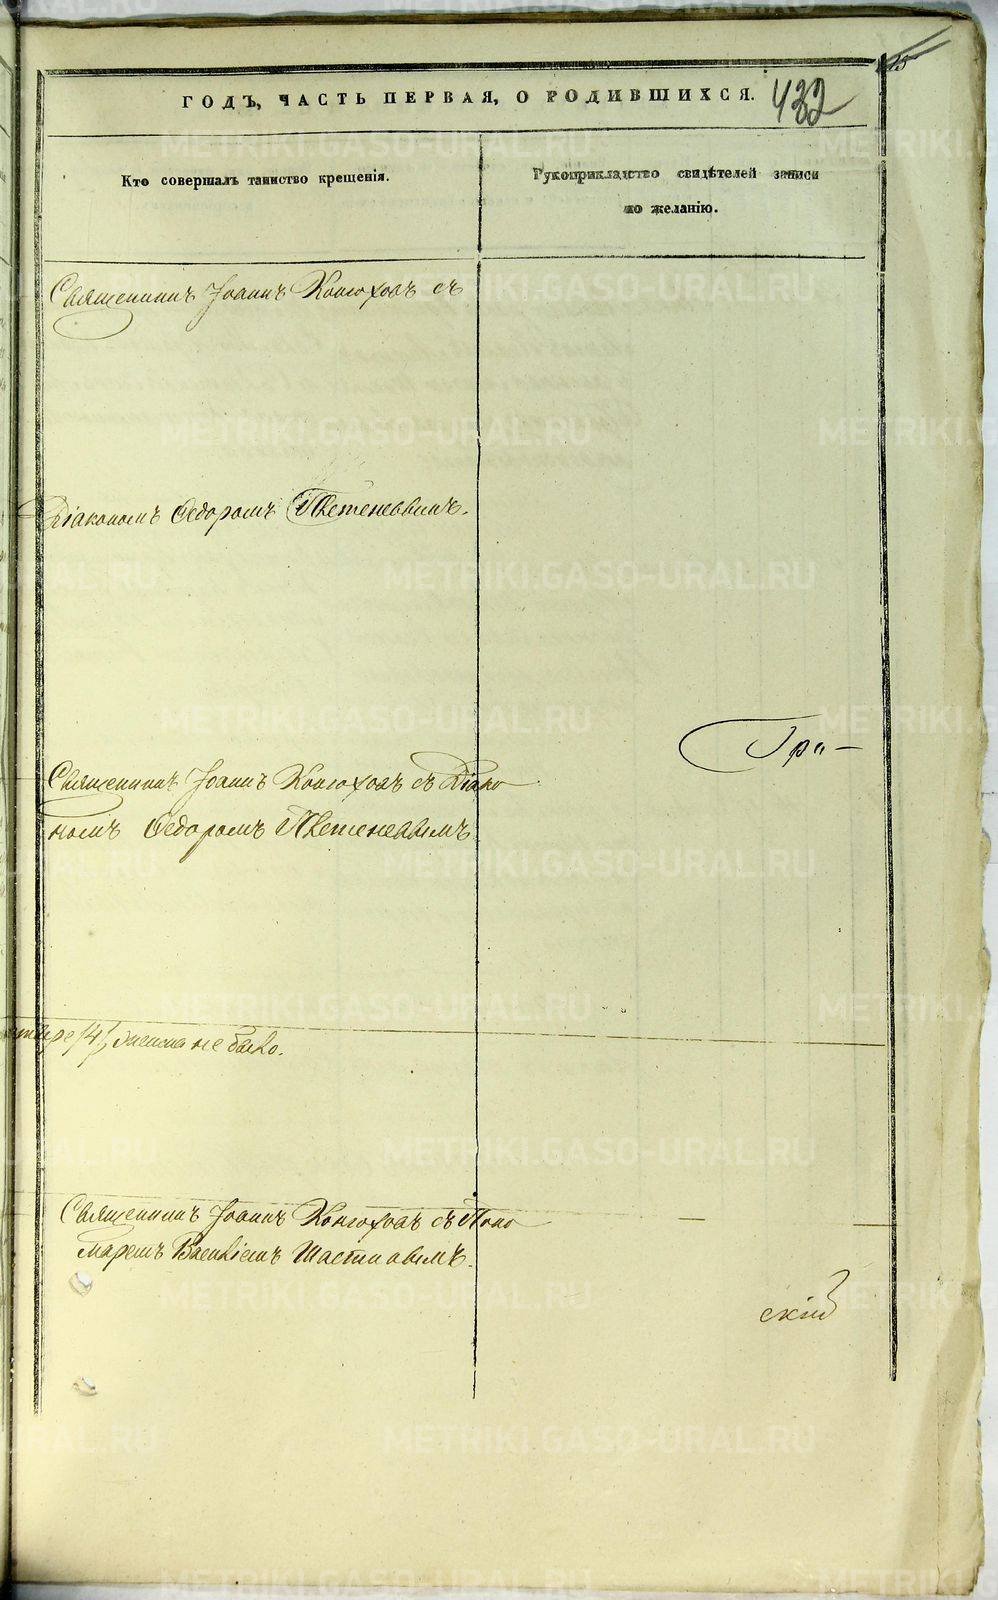 15
ГОДЪ, ЧАСТЬ ПЕРВАЯ, О РОДИВШИХСЯ. 432
Кто совершалъ таинство крещенія.
Рукоприкладство свидѣтелей записи
по желанію.
Священникъ Іоаннъ Конюховъ съ
Діакономъ Ѳедоромъ
Гри-
Священникъ Іоаннъ Конюховъ съ Діако
номъ Ѳедоромъ
/4/ не было.
Священникъ Іоаннъ Конюховъ съ Поно
маремъ Василіемъ
скій
METRIKI.GASO-URAL.RU